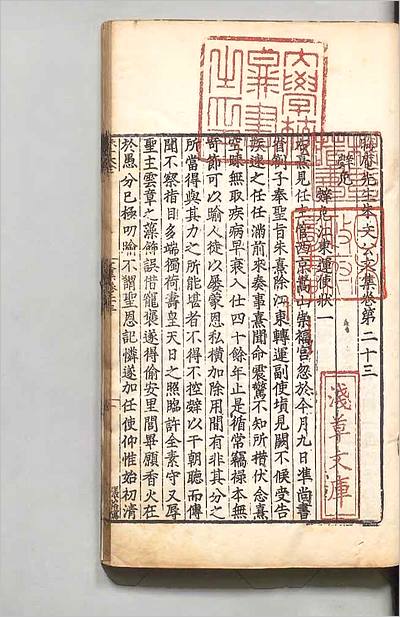 晦庵先生朱文公文集卷第二十三
辭免
辭免江東運使狀一
右熹見任主管西京嵩山崇福宮忽於今月九日準尚書
省劄子奉聖旨朱熹除江東轉運副使填見闕不候受告
疾速之任任滿前來奏事熹聞命震驚不知所措伏念熹
空疎無取疾病早衰入仕四十餘年止是循常竊祿本無
奇節可以踰人徒以屢蒙恩私橫加除用聞有非其分之
所當得與其力之所能堪者不得不控辭以干朝聽而傳
聞不察指目多端獨荷壽皇天日之照臨許全素守又辱
聖主雲章之藻飾誤借寵褒遂得偷安里閭畢願香火在
於愚分已極叨踰不謂聖恩記憐遂加任使仰惟始初清
淺草文庫